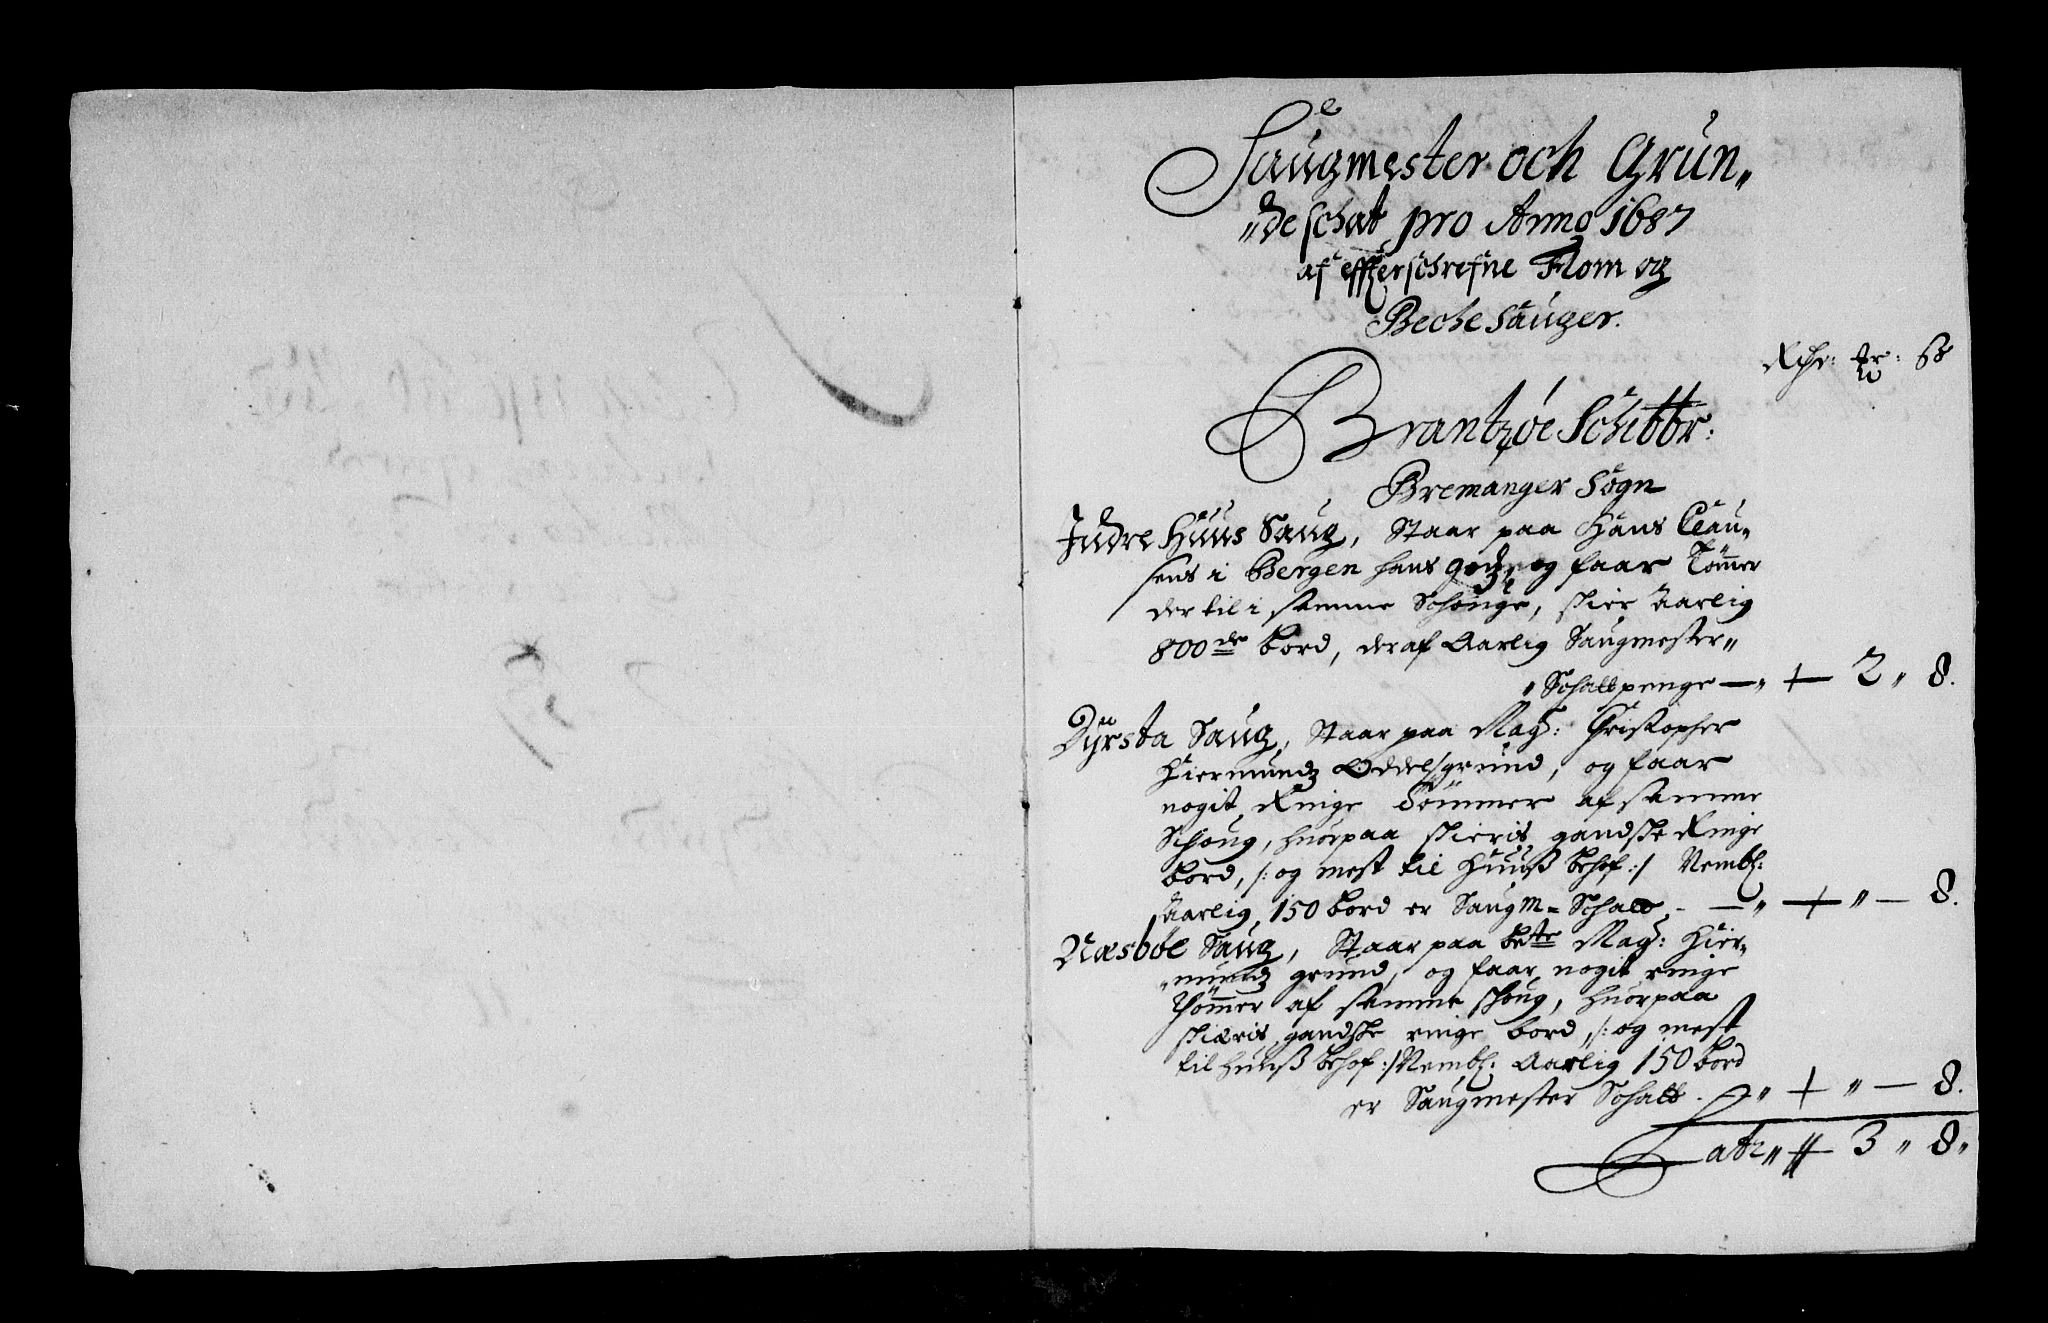 Saugmester och Grun„
„deschat pro Anno 1687
af effterschrefne Flom og
Beche Sauger.
Rdr: ort: ß
Brantzøe Schibbr:
Bremanger Sogn
Indre Huus Saug, Staar paa Hans Clau„
sens i Bergen hans godz, og faar Tømer
der til i samme Schouge, skier Aarlig
800de bord, der af Aarlig Saugmester„
„Schatt penge — „ + 2 „ 8.
Dyrsta Saug, Staar paa Mag: Christopher
Hiermundz Oddelsgrund, og faar
nogit Ringe Tømmer af samme
Schoug, huorpaa skieris gandske Ringe
bord, /: og mest til Huuß behof :/ Nembl:
Aarlig 150 bord er Saugm= Schatt - — „ + „ — 8.
Næsbøe Saug, Staar paa bete Mag: Hier„
„mundz grund, og faar nogit ringe
Thømer af samme schoug, huorpaa
skiæris gandske ringe bord, /: og mest
til huuß behof :/ Nembl: Aarlig 150 bord
er Saugmester Schatt - „ + „ — 8.
Latr „ + 3 „ 8 „